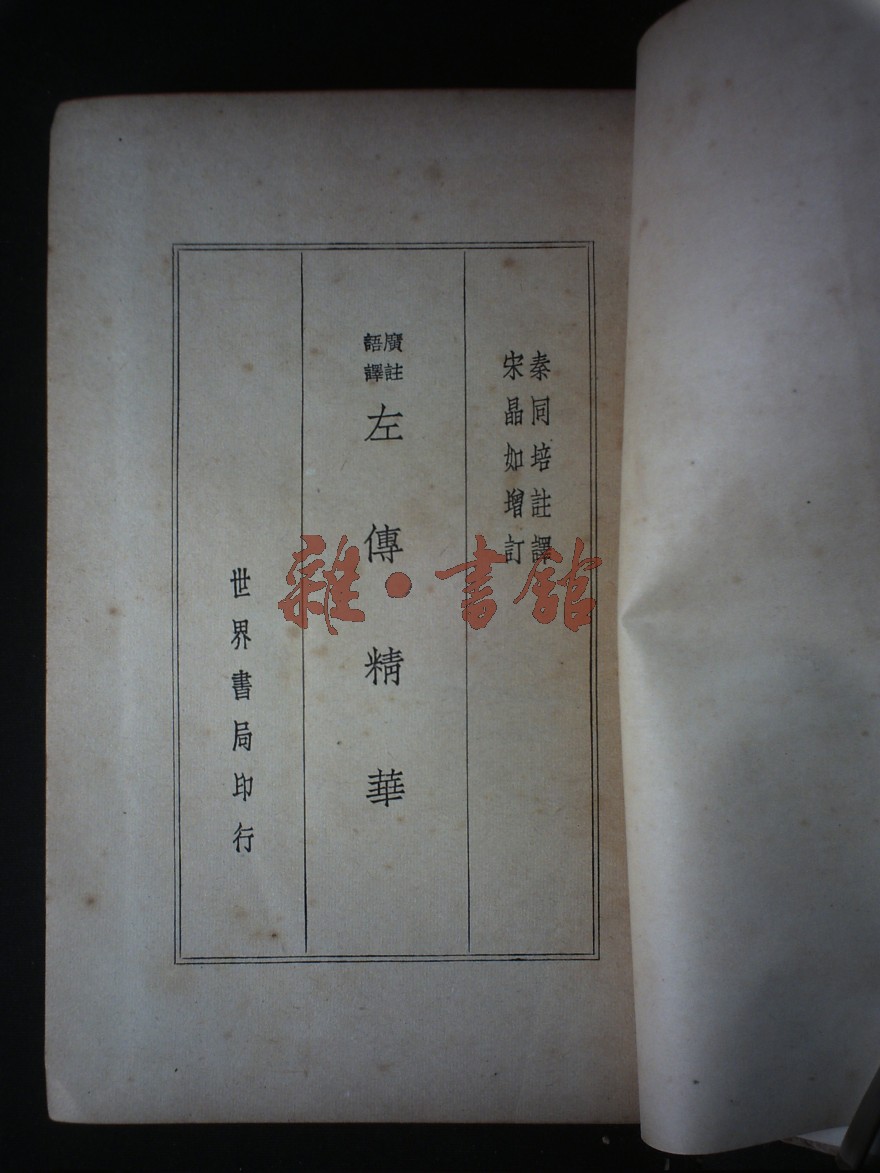 秦同培註譯
宋晶如增訂
廣註
語譯
左傳精華
世界書局印行
雜·書館